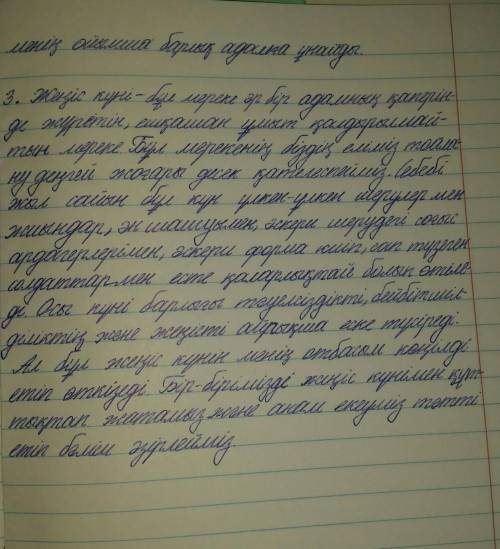 менің ойымша барлық адамға ұнайды.
3. Жеңіс күні – бұл мереке әр бір адамның қаперін-
де жүретін, ешқашан ұмыт қалдырылмай-
тын мереке. Бұл мерекенің біздің еліміз тойла-
ну деңгей жоғары десек қателеспейміз. Себебі
жыл сайын бұл күн үлкен-үлкен шерулер мен
жиындар, ән шашуымен, әскери шерудегі соғыс
ардагерлерімен, әскери форма киіп, сап түзеген
солдаттармен есте қаларлықтай болып өтіле-
ді. Осы күні барлығы тәуелсіздікті, бейбітшілі-
діліктің және жеңісті айрықша еске түсіреді.
Ал бұл жеңіс күнін менің отбасым көңілді
етіп өткізеді. Бір-бірімізді жеңіс күнімен құт-
тықтап жатамыз және анам екеуміз тәтті
етіп бәлім әзірлейміз.